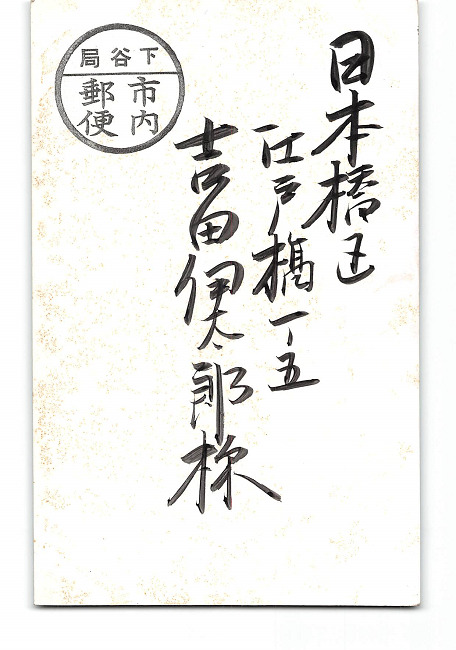 下谷局
市内
郵便
日本橋区
江戸橋一ノ五
吉田伊太郎様